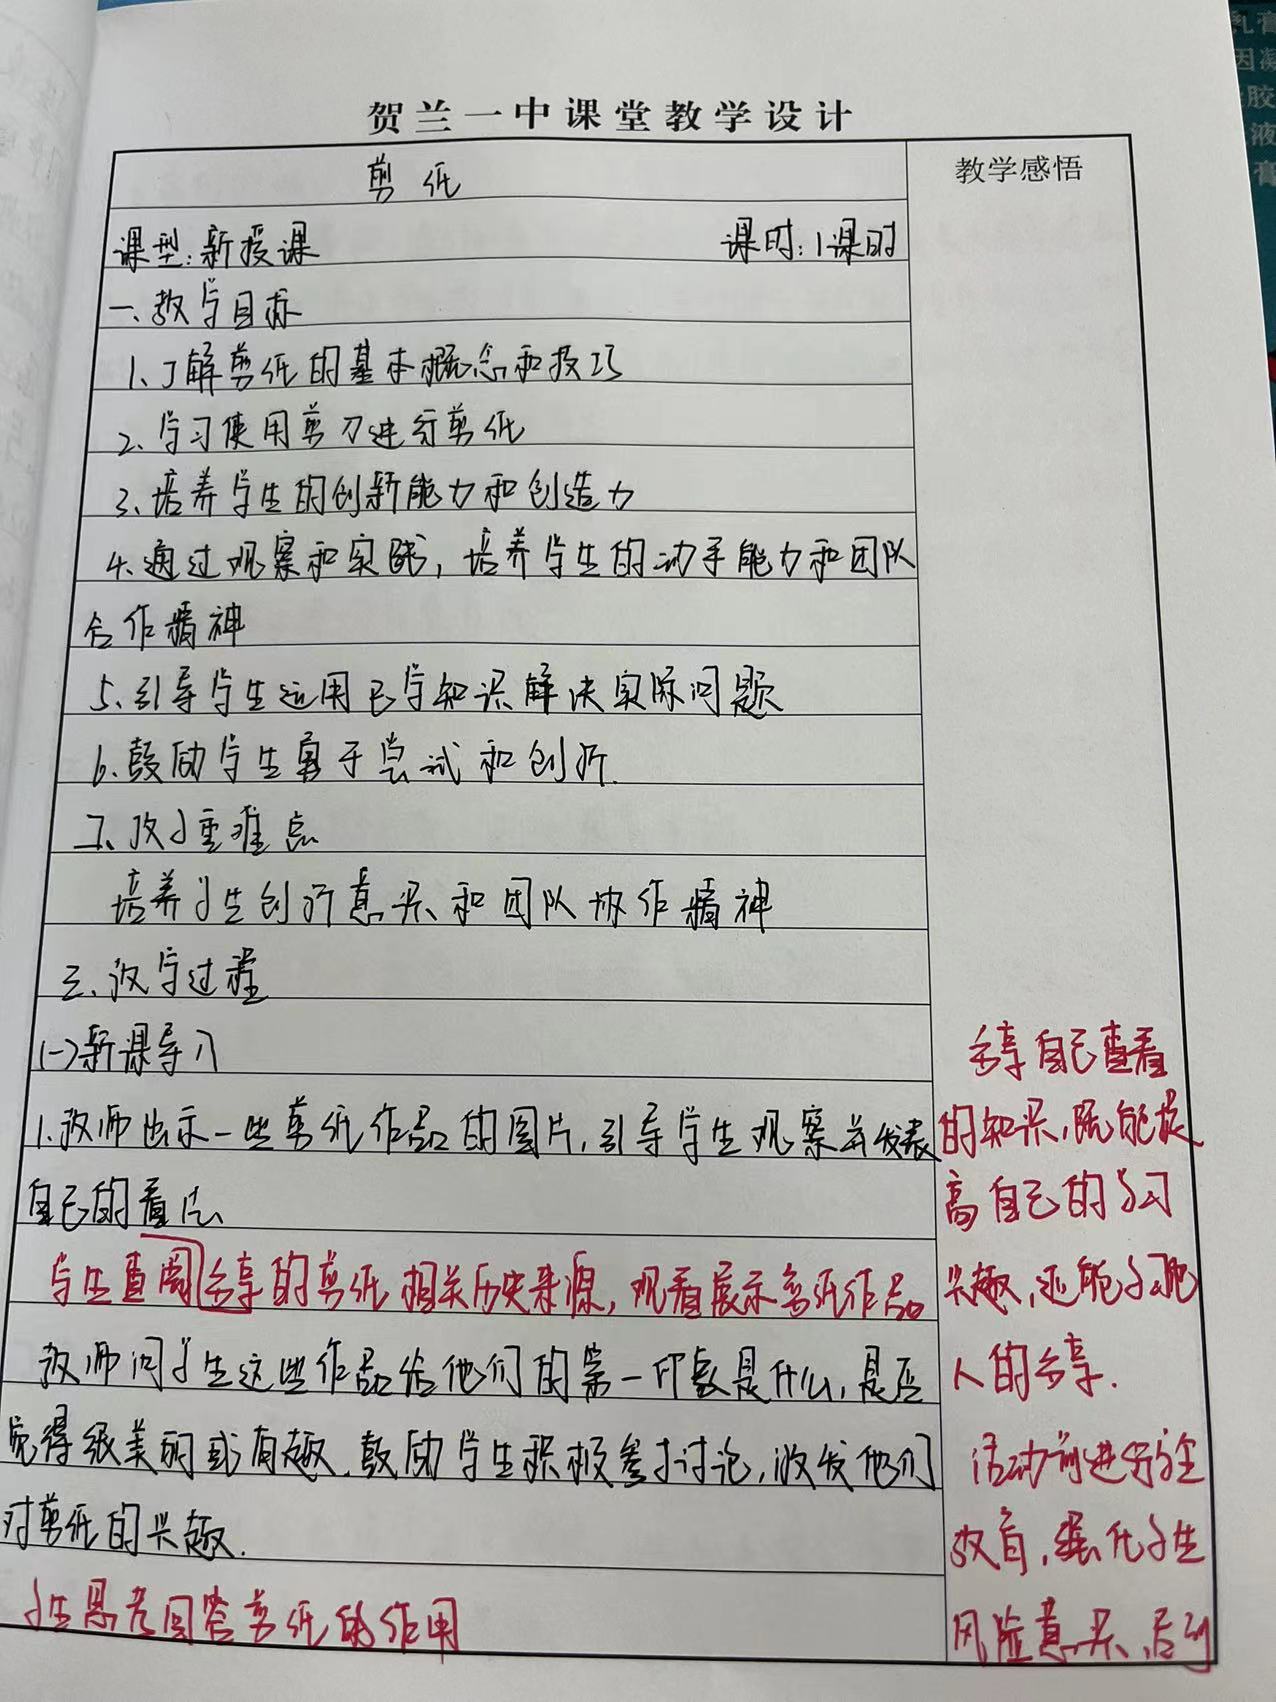 贺兰一中课堂教学设计
剪纸
教学感悟
课型:新授课 课时:1课时
一、教学目标
1、了解剪纸的基本概念和技巧
2、学习使用剪刀进行剪纸
3、培养学生的创新能力和创造力
4、通过观察和实践,培养学生的动手能力和团队
合作精神
5、引导学生运用已学知识解决实际问题
6、鼓励学生勇于尝试和创新.
二、教学重难点
培养学生创新意识和团队协作精神
三、教学过程
(一)新课导入
1、教师出示一些剪纸作品的图片,引导学生观察并发表
自己的看法、
学生查阅分享的剪纸相关历史来源,观看展示剪纸作品
教师问学生这些作品给他们的第一印象是什么,是否
觉得很美丽或有趣.鼓励学生积极参与讨论,激发他们
对剪纸的兴趣.
学生思考回答剪纸的作用
分享自己查看
的知识,既能提
高自己的学习
兴趣,还能学习他
人的分享.
活动前进行安全
教育,强化学生
风险意识,
乳膏
因凝
胶
液
膏